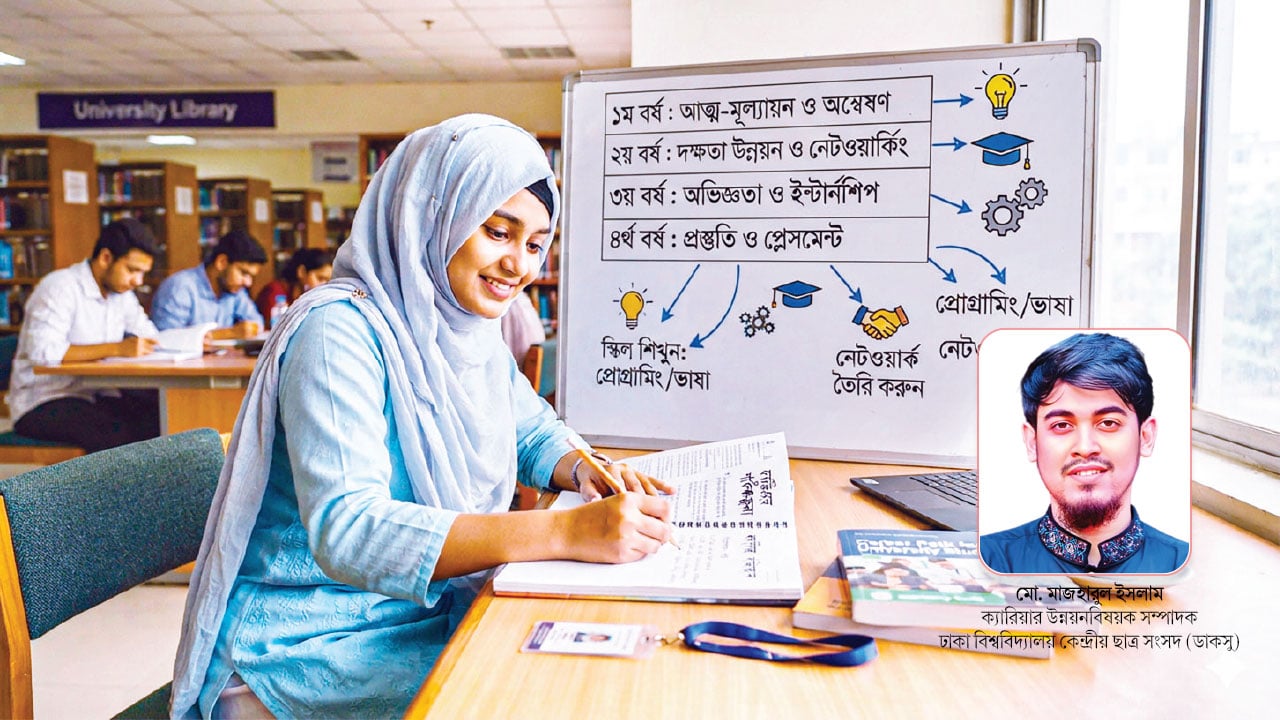 University Library
১ম বর্ষ : আত্ম-মূল্যায়ন ও অন্বেষণ
২য় বর্ষ : দক্ষতা উন্নয়ন ও নেটওয়ার্কিং
৩য় বর্ষ : অভিজ্ঞতা ও ইন্টার্নশিপ
৪র্থ বর্ষ : প্রস্তুতি ও প্লেসমেন্ট
স্কিল শিখুন:
প্রোগ্রামিং/ভাষা
নেটওয়ার্ক
তৈরি করুন
প্রোগ্রামিং/ভাষা
মো. মাজহারুল ইসলাম
ক্যারিয়ার উন্নয়নবিষয়ক সম্পাদক
ঢাকা বিশ্ববিদ্যালয় কেন্দ্রীয় ছাত্র সংসদ (ডাকসু)